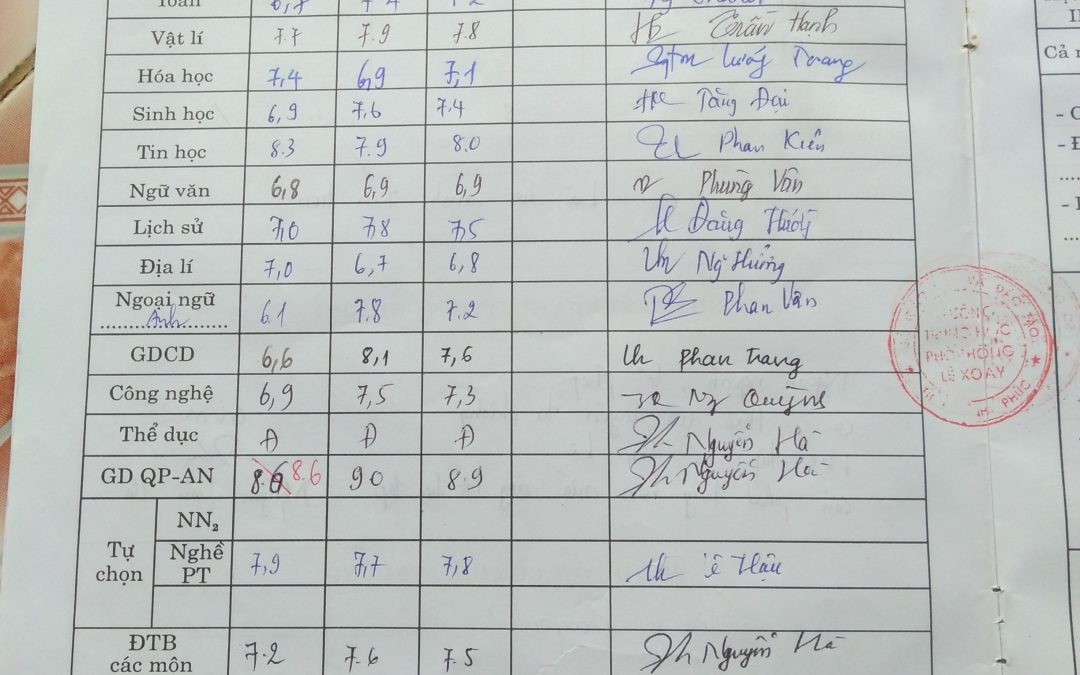 Toán
Vật lí 7.7 7.9 7.8 Trần Hạnh
Hóa học 7,4 6,9 7,1
Sinh học 6,9 7,6 7.4 Tăng Đại
Tin học 8.3 7.9 8.0 Phan Kiên
Ngữ văn 6,8 6,9 6,9 Phùng Vân
Lịch sử 7,0 7,8 7,5 Đặng
Địa lí 7,0 6,7 6,8
Ngoại ngữ
Anh 6.1 7.8 7.2 Phan Vân
GDCD 6,6 8,1 7,6 Phan Trang
Công nghệ 6,9 7,5 7,3 Ng Quỳnh
Thể dục Đ Đ Đ Nguyễn Hà
GD QP-AN 8.6 9.0 8.9 Nguyễn Hà
Tự chọn
NN₂
Nghề PT 7,9 7,7 7,8 Hậu
ĐTB các môn 7.2 7.6 7.5 Nguyễn Hà
PHỔ THÔNG
LÊ XOAY
PHÚC
Cả